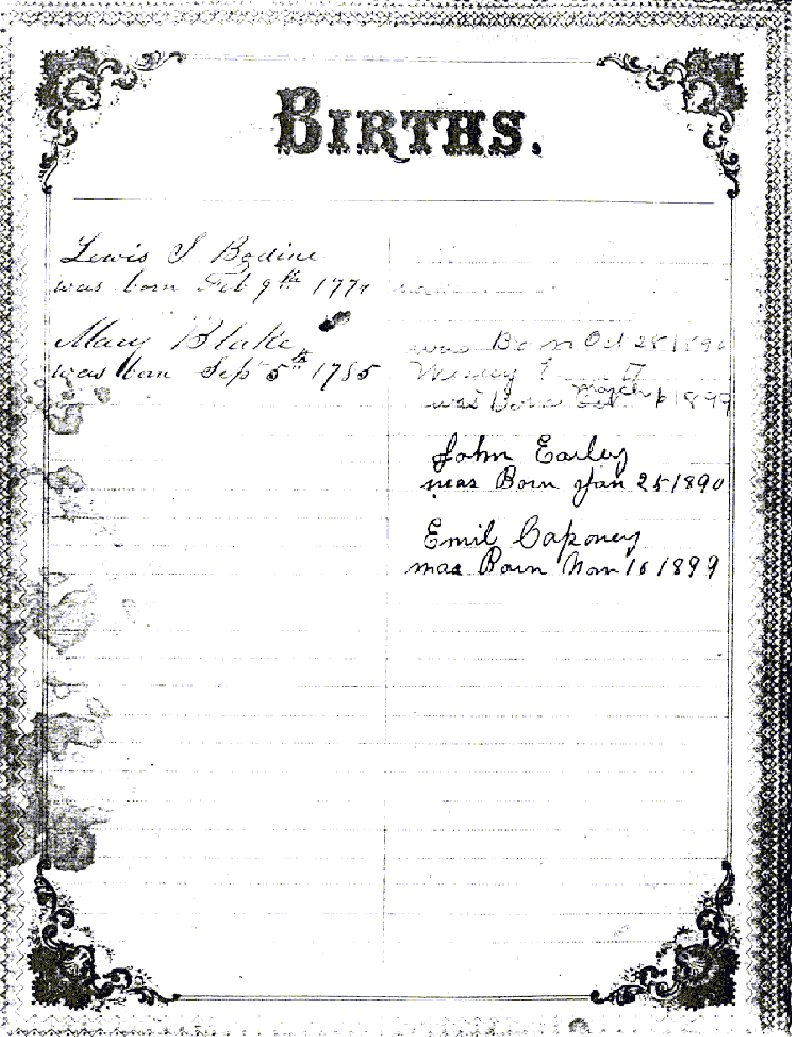 BIRTHS.
Lewis S Bodine
was born Feb 9th 177
Mary Blake
was born Sep 5th 1785
was Born Oct 28 189
March
was born 1899
John Earley
was Born Jan 25 1890
Emil Caponey
was Born Nom 16 1899